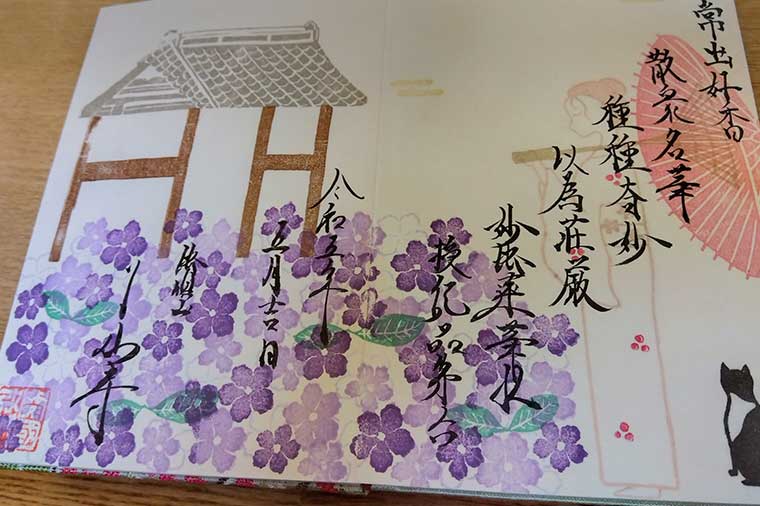 常出好香
散衆名華
種種奇妙
以為荘厳
妙法蓮華経
授記品第六
令和五年
五月吉日